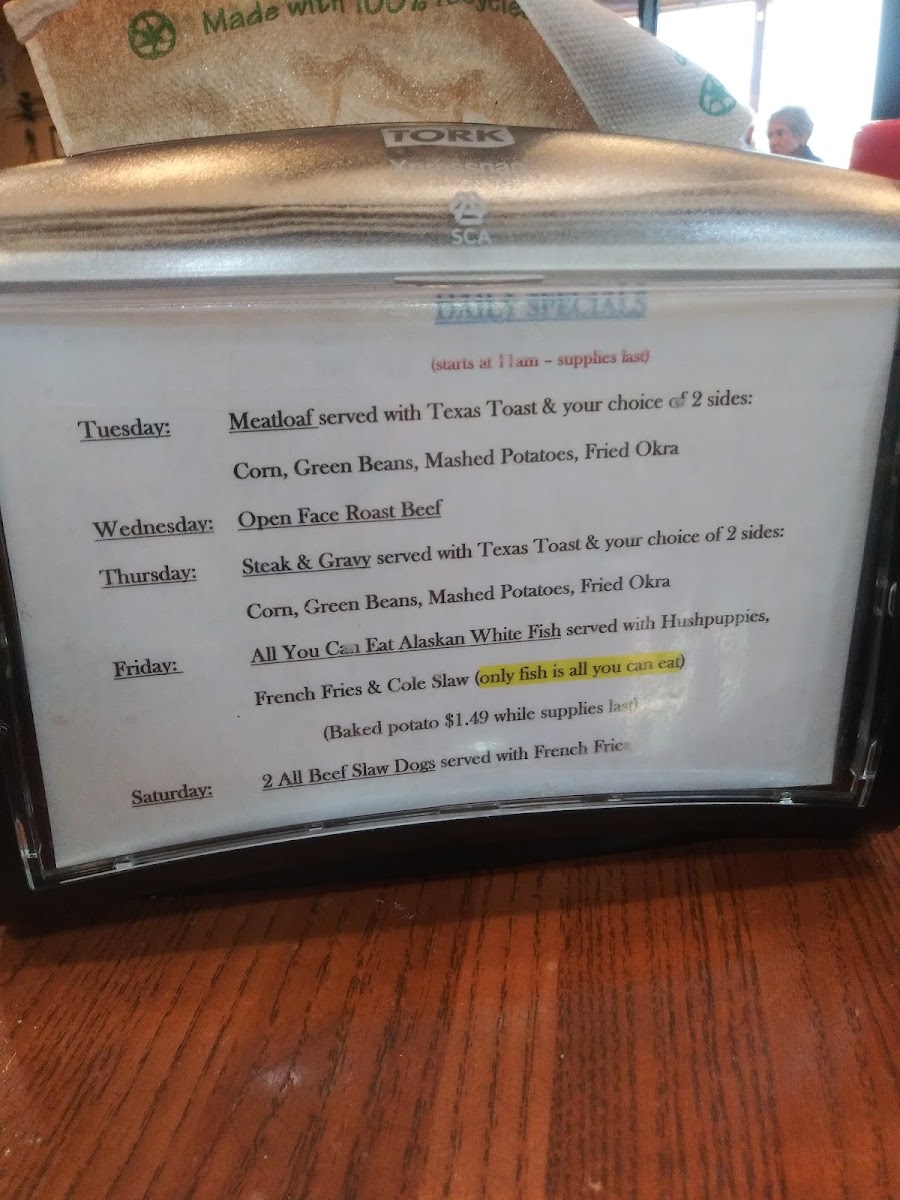 Made with 100%
TORK
SCA
DAILY SPECIALS
(starts at 11am – supplies last)
Tuesday: Meatloaf served with Texas Toast & your choice of 2 sides:
Corn, Green Beans, Mashed Potatoes, Fried Okra
Wednesday: Open Face Roast Beef
Thursday: Steak & Gravy served with Texas Toast & your choice of 2 sides:
Corn, Green Beans, Mashed Potatoes, Fried Okra
Friday: All You Can Eat Alaskan White Fish served with Hushpuppies,
French Fries & Cole Slaw (only fish is all you can eat)
(Baked potato $1.49 while supplies last)
Saturday: 2 All Beef Slaw Dogs served with French Fries